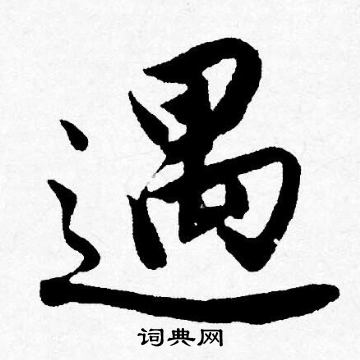 遇
词典网